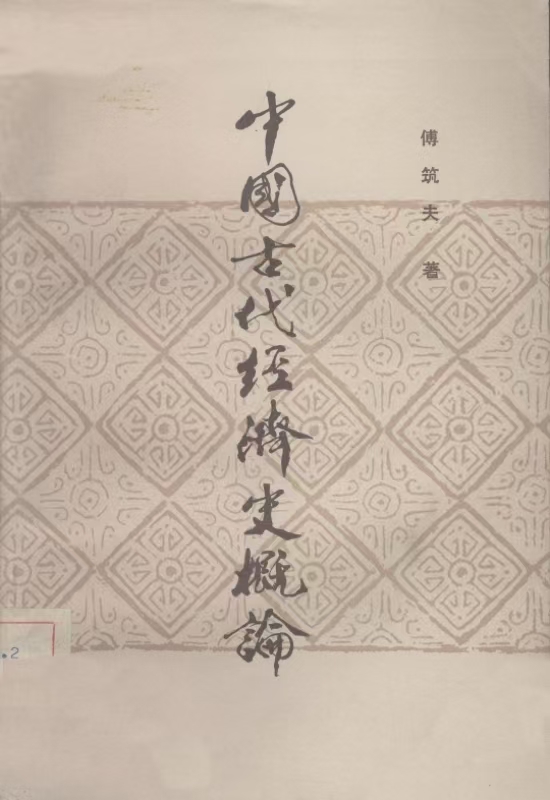 傅筑夫 著
中國古代經濟史概論
.2